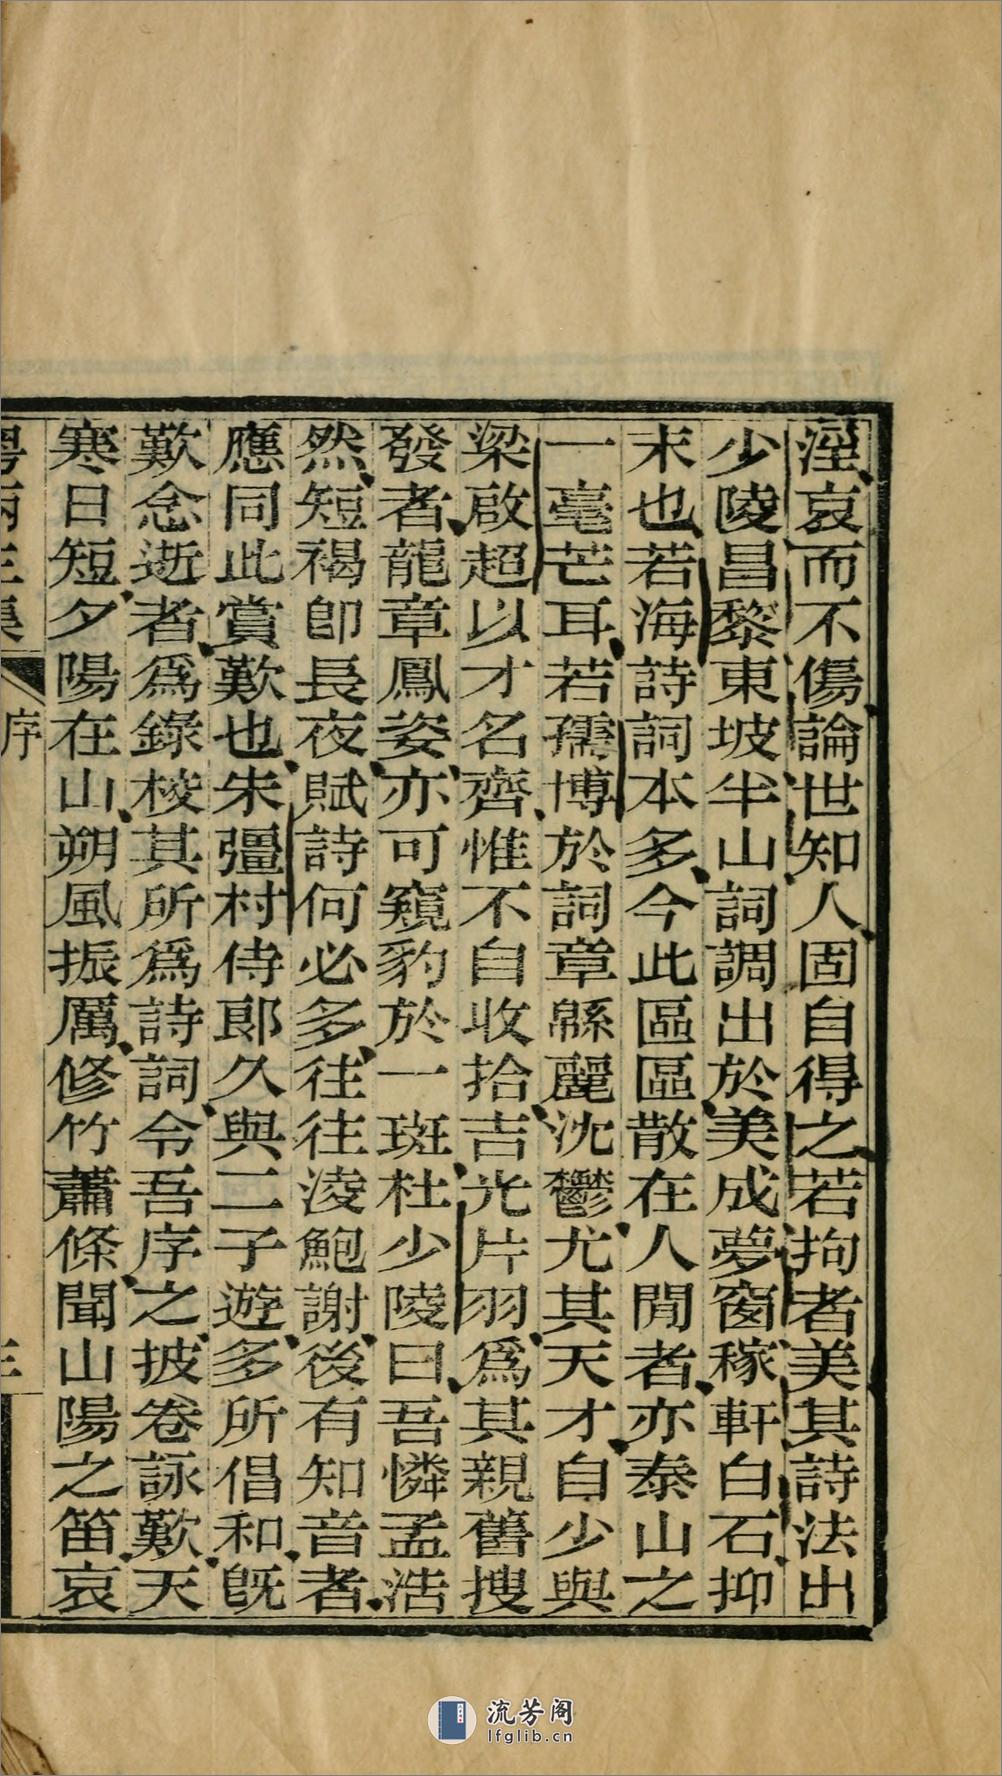 淫哀而不傷論世知人固自得之若拘者美其詩法出
少陵昌黎東坡半山詞調出於美成夢窗稼軒白石抑
末也若海詩詞本多今此區區散在人間者亦泰山之
一毫芒耳若孺博於詞章緜麗沈鬱尤其天才自少與
梁啟超以才名齊惟不自收拾吉光片羽爲其親舊搜
發者龍章鳳姿亦可窺豹於一斑杜少陵曰吾憐孟浩
然短褐卽長夜賦詩何必多往往淩鮑謝後有知音者
應同此賞歎也朱彊村侍郎久與二子遊多所倡和旣
歎念逝者爲錄校其所爲詩詞令吾序之披卷詠歎天
寒日短夕陽在山朔風振厲修竹蕭條聞山陽之笛哀
粵兩生集
序
三
流芳阁
lfglib.cn